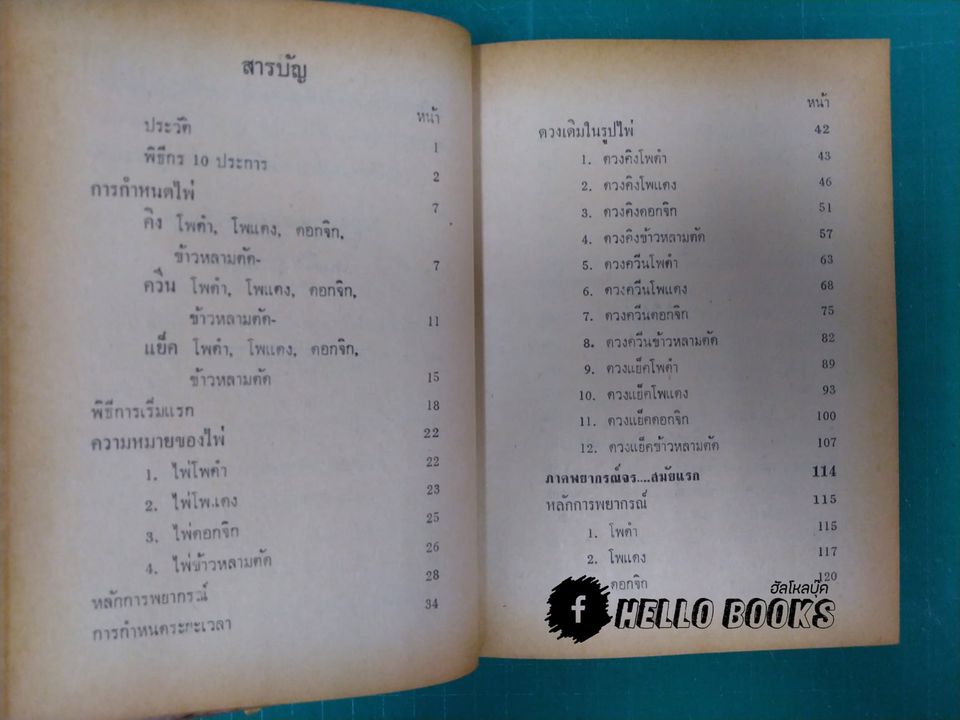 สารบัญ
หน้า
ประวัติ 1
พิธีกร 10 ประการ 2
การกำหนดไพ่ 7
คิง โพดำ, โพแดง, ดอกจิก,
ข้าวหลามตัด- 7
ควีน โพดำ, โพแดง, ดอกจิก,
ข้าวหลามตัด- 11
แย็ค โพดำ, โพแดง, ดอกจิก,
ข้าวหลามตัด 15
พิธีการเริ่มแรก 18
ความหมายของไพ่ 22
1. ไพ่โพดำ 22
2. ไพ่โพแดง 23
3. ไพ่ดอกจิก 25
4. ไพ่ข้าวหลามตัด 26
หลักการพยากรณ์ 28
การกำหนดระยะเวลา 34
หน้า
ดวงเดิมในรูปไพ่ 42
1. ดวงคิงโพดำ 43
2. ดวงคิงโพแดง 46
3. ดวงคิงดอกจิก 51
4. ดวงคิงข้าวหลามตัด 57
5. ดวงควีนโพดำ 63
6. ดวงควีนโพแดง 68
7. ดวงควีนดอกจิก 75
8. ดวงควีนข้าวหลามตัด 82
9. ดวงแย็คโพดำ 89
10. ดวงแย็คโพแดง 93
11. ดวงแย็คดอกจิก 100
12. ดวงแย็คข้าวหลามตัด 107
ภาคพยากรณ์จร....สมัยแรก 114
หลักการพยากรณ์ 115
1. โพดำ 115
2. โพแดง 117
ดอกจิก 120
ฮัลโหลบุ๊ค
f HELLO BOOKS